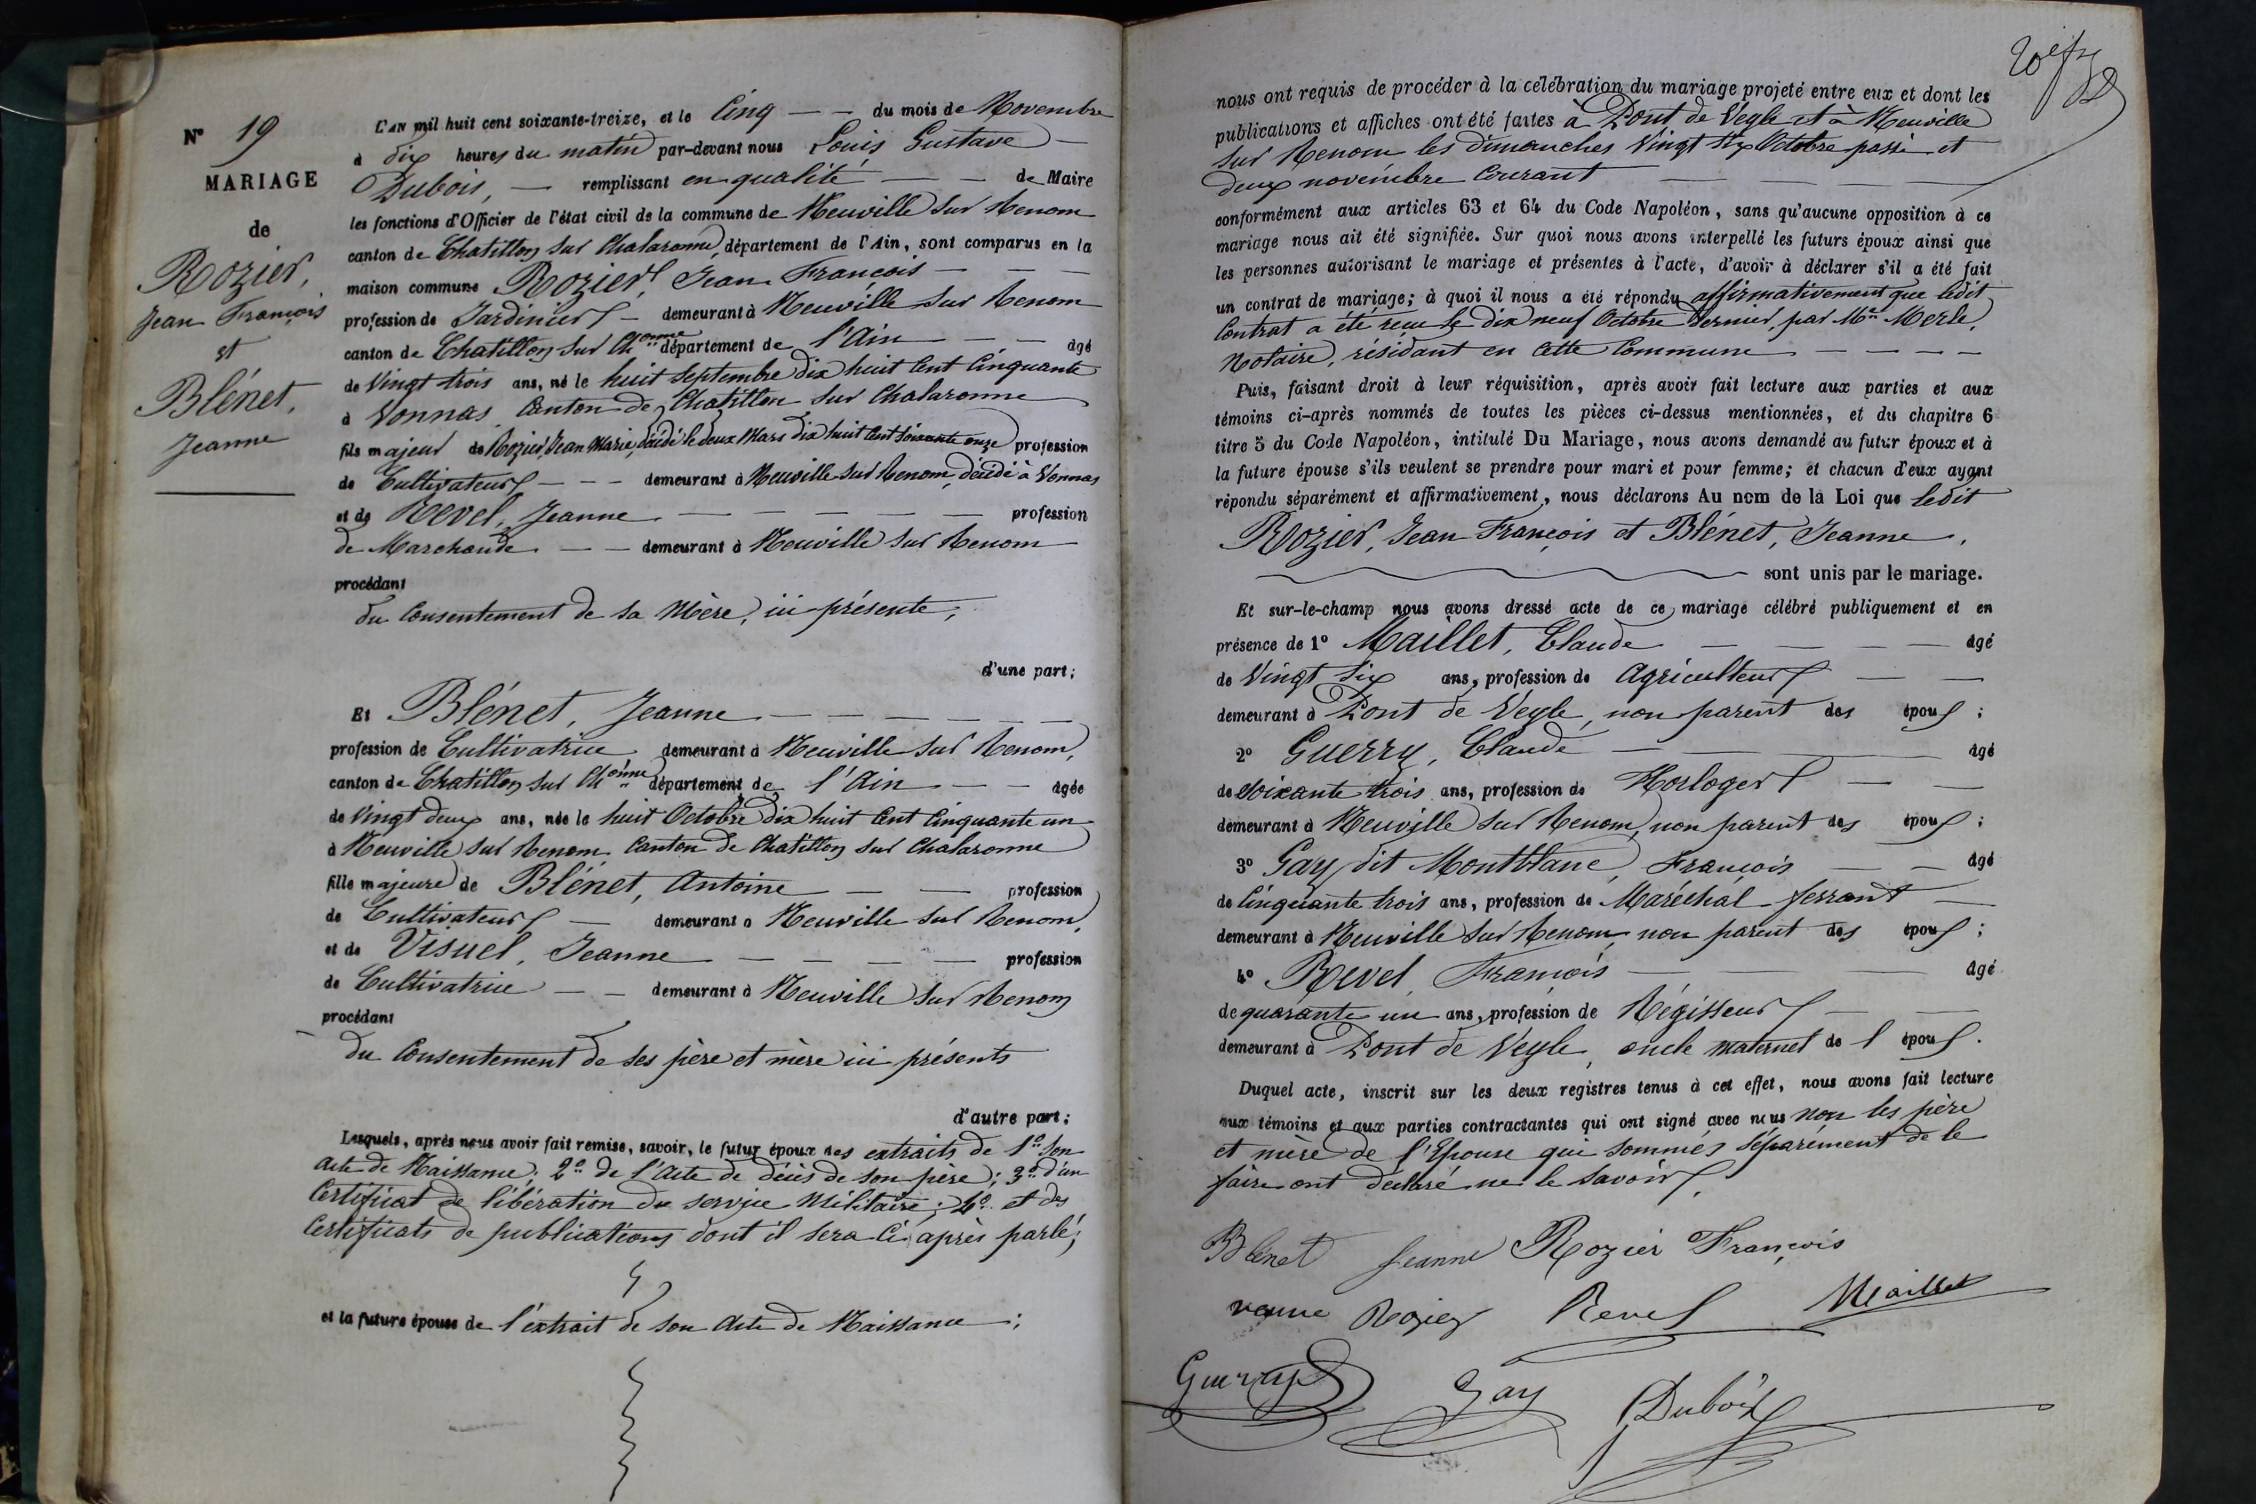 N° 19
MARIAGE
de
Rozier,
Jean François
et
Blénet,
Jeanne
L'AN mil huit cent soixante-treize, et le Cinq — — du mois de Novembre
à dix heures du matin par-devant nous Louis Gustave —
Dubois, — remplissant en qualité — — de Maire
les fonctions d'Officier de l'état civil de la commune de Neuville sur Renom
canton de Chatillon sur Chalaronne, département de l'Ain, sont comparus en la
maison commune Rozier, Jean François — — —
profession de Jardinier — demeurant à Neuville sur Renom
canton de Chatillon sur Ch.onne département de l'Ain — — âgé
de Vingt trois ans, né le huit Septembre dix huit Cent Cinquante
à Vonnas Canton de Chatillon sur Chalaronne
fils majeur de Rozier, Jean Marie, décédé le deux Mars dix huit Cent Soixante onze profession
de Cultivateur — — — demeurant à Neuville sur Renom, décédé à Vonnas
et de Revel, Jeanne — — — — — profession
de Marchande — — demeurant à Neuville sur Renom
procédant
du Consentement de sa Mère, ici présente,
d'une part;
Et Blénet, Jeanne — — — — — —
profession de Cultivatrice demeurant à Neuville sur Renom,
canton de Chatillon sur Ch.onne département de l'Ain — — âgée
de Vingt deux ans, née le huit Octobre dix huit Cent Cinquante un
à Neuville sur Renom Canton de Chatillon sur Chalaronne
fille majeure de Blénet, Antoine — — profession
de Cultivateur — demeurant à Neuville sur Renom,
et de Visuel, Jeanne — — — — profession
de Cultivatrice — — demeurant à Neuville sur Renom
procédant
du Consentement de ses père et mère ici présents
d'autre part;
Lesquels, après nous avoir fait remise, savoir, le futur époux des extraits de 1° Son
Acte de Naissance; 2° de l'Acte de décès de son père; 3° d'un
Certificat de libération du service Militaire; 4° et des
Certificats de publications dont il sera Ci après parlé;
et la future épouse de l'extrait de son Acte de Naissance;
nous ont requis de procéder à la célébration du mariage projeté entre eux et dont les
publications et affiches ont été faites à Pont de Veyle et à Neuville
sur Renom les dimanches Vingt six Octobre passé et
deux novembre Courant — — — —
conformément aux articles 63 et 64 du Code Napoléon, sans qu'aucune opposition à ce
mariage nous ait été signifiée. Sur quoi nous avons interpellé les futurs époux ainsi que
les personnes autorisant le mariage et présentes à l'acte, d'avoir à déclarer s'il a été fait
un contrat de mariage; à quoi il nous a été répondu affirmativement que ledit
Contrat a été reçu le dix neuf Octobre dernier, par Me Merle,
Notaire, résidant en cette Commune — — — —
Puis, faisant droit à leur réquisition, après avoir fait lecture aux parties et aux
témoins ci-après nommés de toutes les pièces ci-dessus mentionnées, et du chapitre 6
titre 5 du Code Napoléon, intitulé Du Mariage, nous avons demandé au futur époux et à
la future épouse s'ils veulent se prendre pour mari et pour femme; et chacun d'eux ayant
répondu séparément et affirmativement, nous déclarons Au nom de la Loi que ledit
Rozier, Jean François et Blénet, Jeanne,
sont unis par le mariage.
Et sur-le-champ nous avons dressé acte de ce mariage célébré publiquement et en
présence de 1° Maillet, Claude — — — — âgé
de Vingt six ans, profession de Agriculteur — —
demeurant à Pont de Veyle, non parent des époux;
2° Guerry, Claude — — âgé
de soixante trois ans, profession de Horloger — —
demeurant à Neuville sur Renom, non parent des époux;
3° Gay dit Montblanc, François — — âgé
de Cinquante trois ans, profession de Maréchal ferrant —
demeurant à Neuville sur Renom non parent des époux;
4° Revel, François — — âgé
de quarante un ans, profession de Régisseur — —
demeurant à Pont de Veyle, oncle maternel de l'époux.
Duquel acte, inscrit sur les deux registres tenus à cet effet, nous avons fait lecture
aux témoins et aux parties contractantes qui ont signé avec nous non les père
et mère de l'Epouse qui sommés séparément de le
faire ont déclaré ne le savoir.
Blénet Jeanne Rozier François
veuve Rozier Revel Maillet
Guerry Gay Dubois